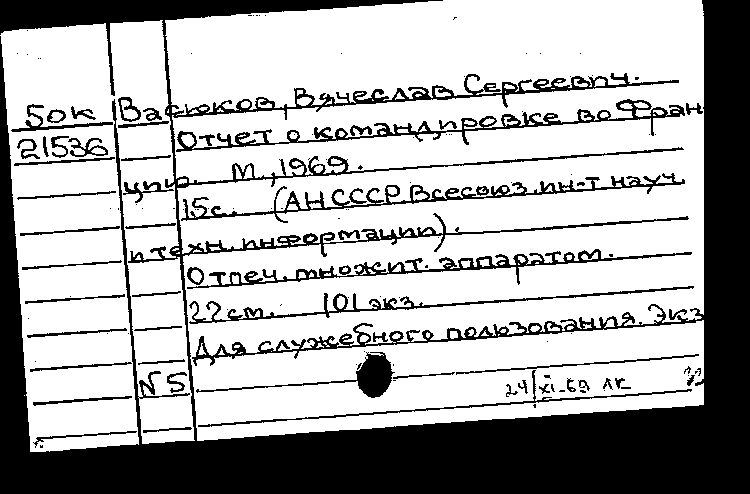 50к Васюков, Вячеслав Сергеевич.
21536 Отчет о командировке во Фран-
цию. М., 1969.
15с. (АН СССР. Всесоюз. ин-т науч.
и техн. информации).
Отпеч. множит. аппаратом.
22см. 101 экз.
Для служебного пользования. Экз
N 5
24/XI-69 ЛК